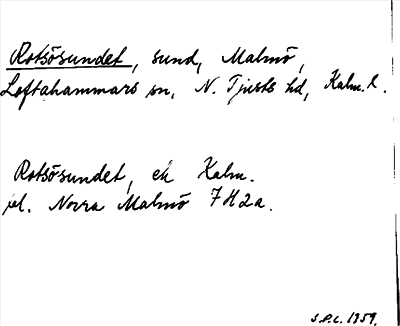 Rotsösundet, sund, Malmö,
Loftahammars sn, N. Tjusts hd, Kalm. l.
Rotsösundet, ek Kalm.
bl. Norra Malmö 7H2a.
S.P.C. 1959.